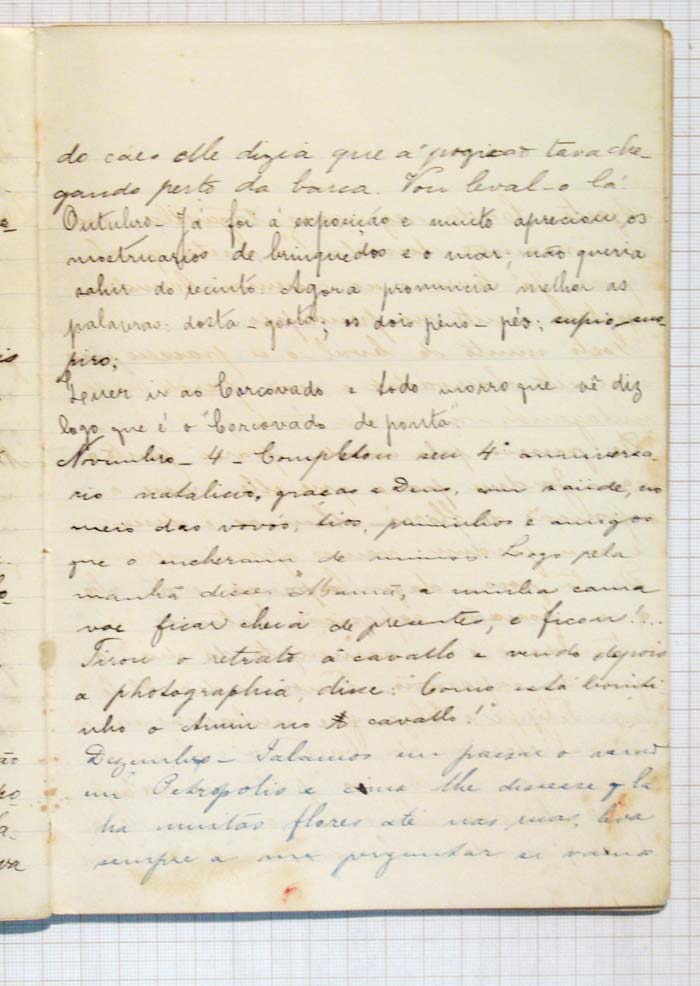 do cáes elle dizia que a pogição tava che-
gando perto da barca. Vou leval-o lá.
Outubro - Já foi á exposição e muito apreciou os
mostruarios de brinquedos e o mar; não queria
sahir do recinto. Agora pronuncia melhor as
palavras: dosta - gosta; os dois péns - pés; supio, sus-
piro;
Quer ir ao Corcovado e todo morro que vê diz
logo que é o "Corcovado de ponta".
Novembro - 4 - Completou seu 4º anniversa-
rio natalicio, graças a Deus, com saúde, no
meio das vovós, tios, priminhos e amigos
que o encheram de mimos. Logo pela
manhã disse: "Mamã, a minha cama
vae ficar cheia de presentes, e ficou!...
Tirou o retrato á cavallo e vendo depois
a photographia, disse: "Como está boniti-
nho o no cavallo!"
Dezembro - Falamos em passar o verão
em Petropolis e como lhe dissesse q. la
ha muitas flores até nas ruas, leva
sempre a me perguntar si vamos
ão
va